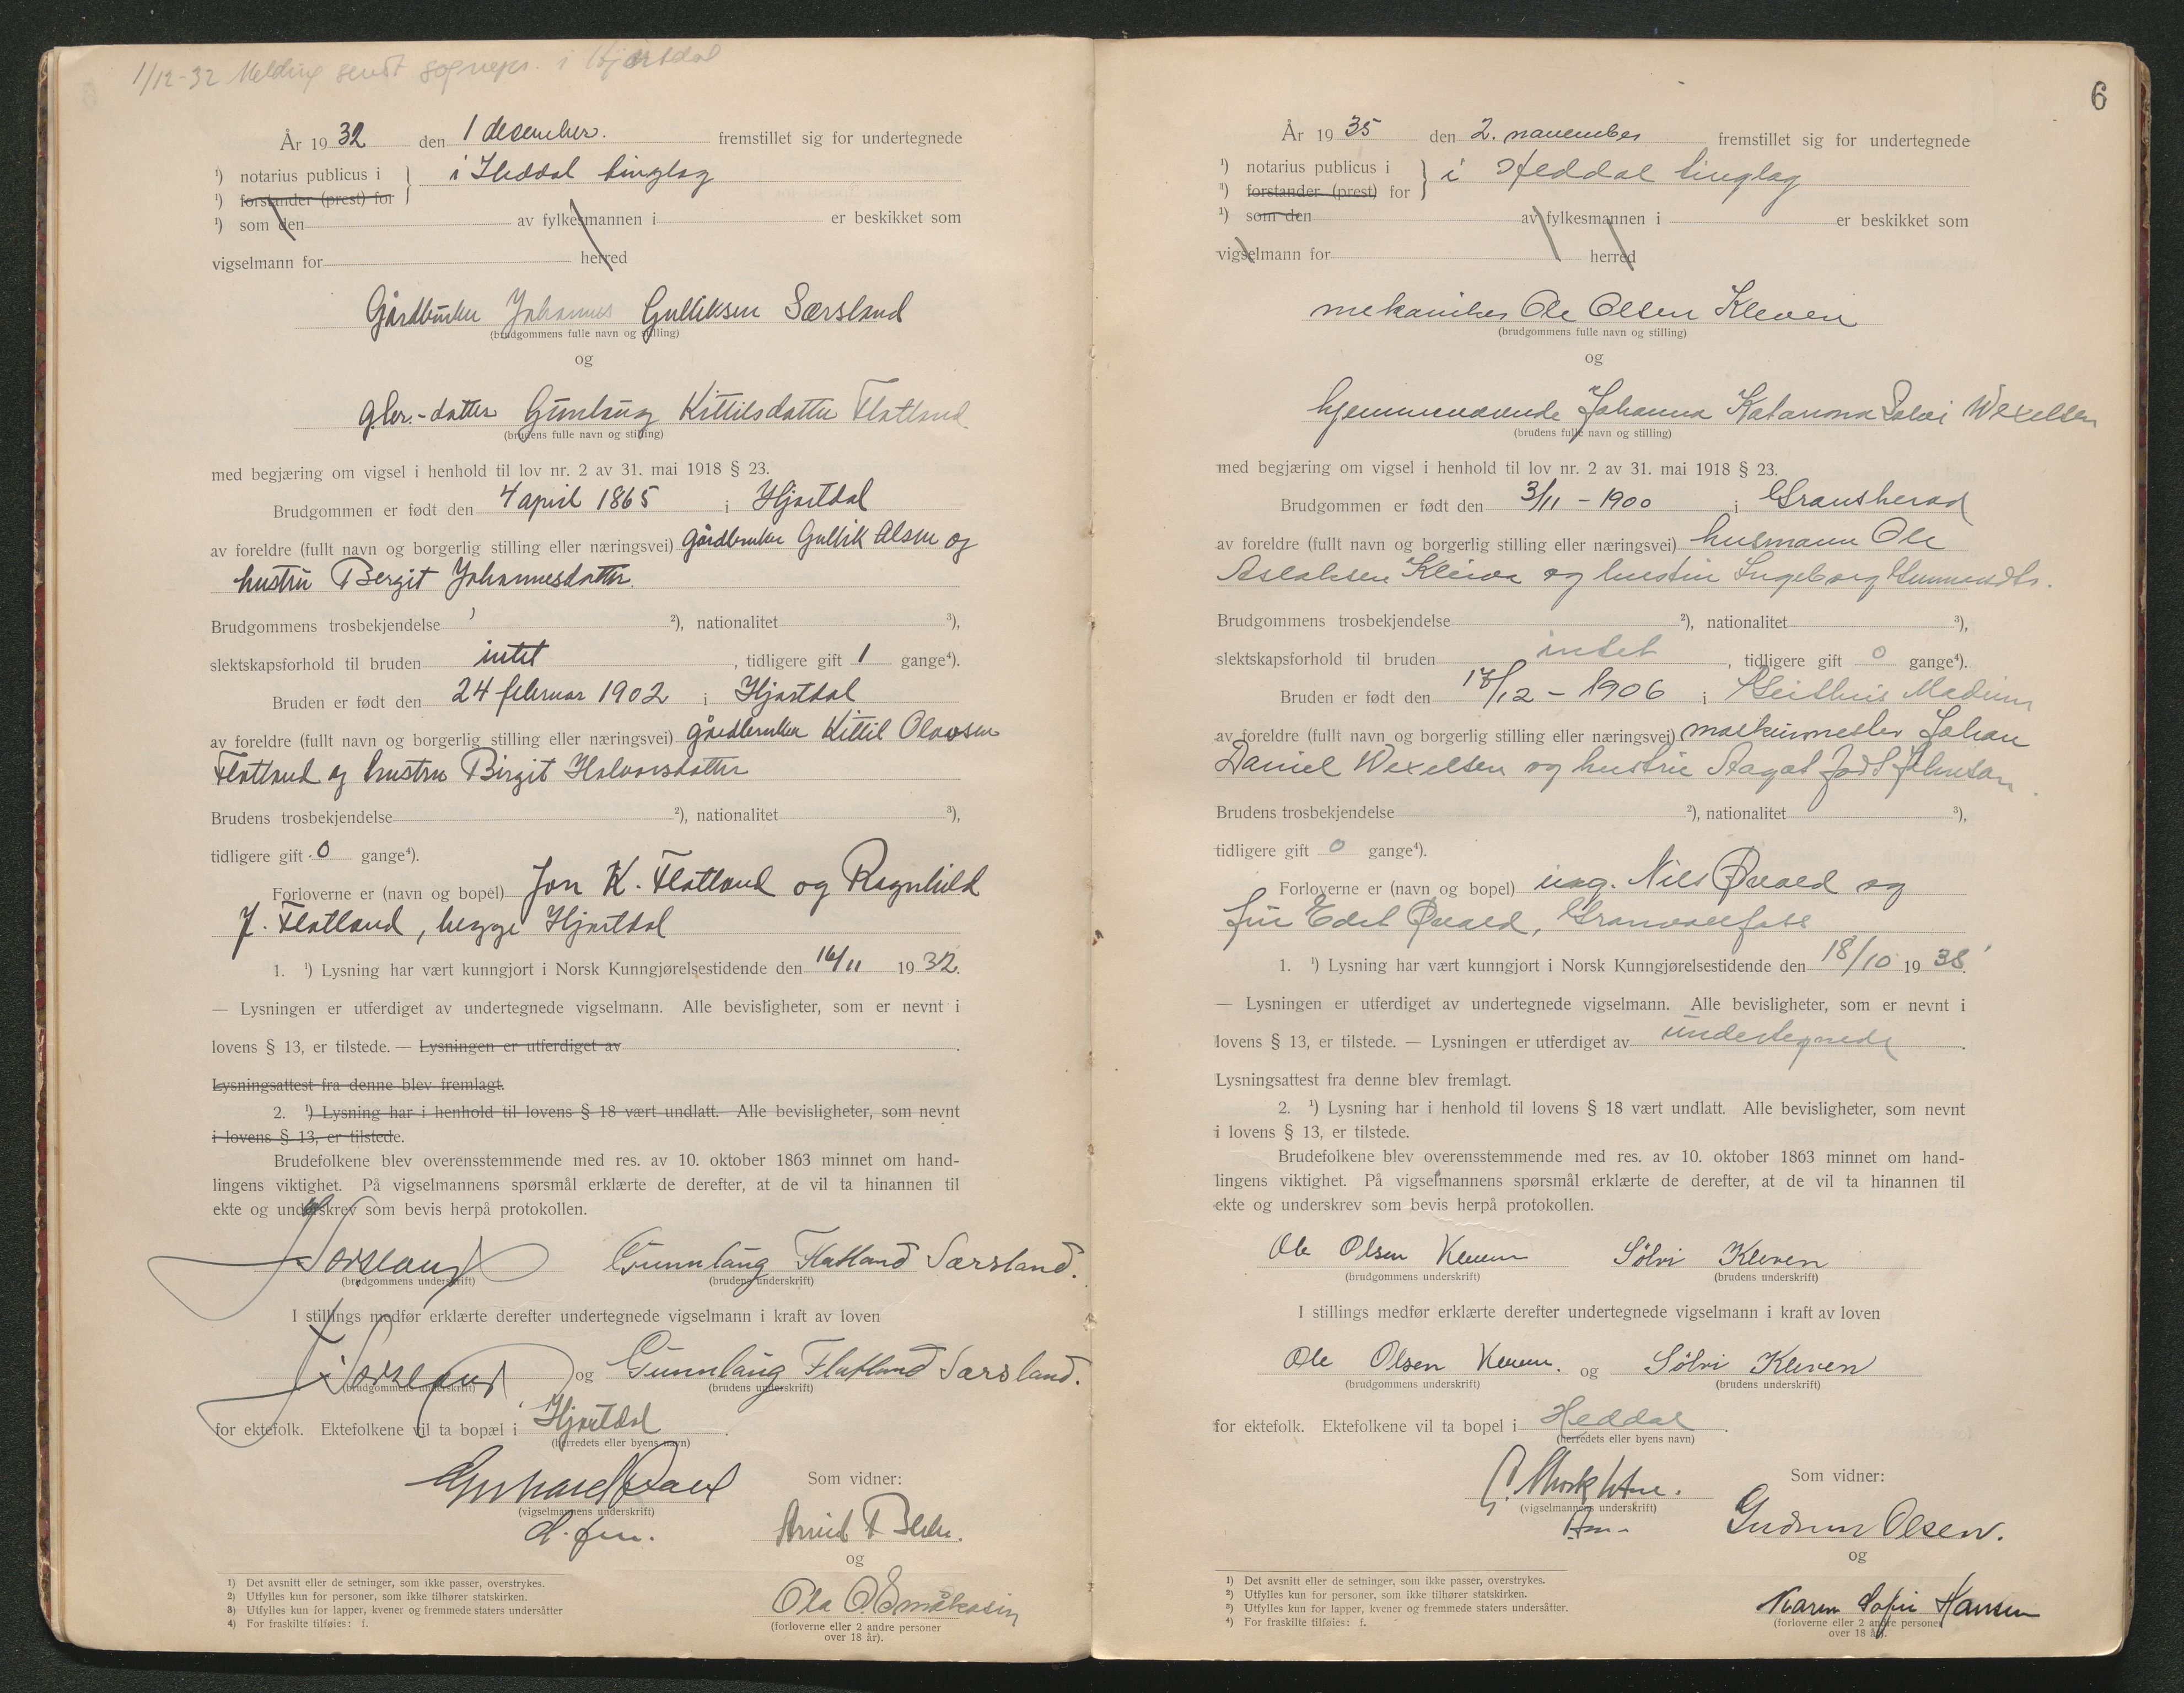 1/12-32 Melding sendt sognepr. i Hjartdal
År 1932 den 1 desember. fremstillet sig for undertegnede
¹) notarius publicus i } i Heddal tinglag
¹) forstander (prest) for
¹) som den av fylkesmannen i er beskikket som
vigselmann for herred
Gårdbruker Johannes Gulliksen Særsland
(brudgommens fulle navn og stilling)
og
gbr.-datter Gunlaug Kittilsdatter Flatland
(brudens fulle navn og stilling)
med begjæring om vigsel i henhold til lov nr. 2 av 31. mai 1918 § 23.
Brudgommen er født den 4 april 1865 i Hjartdal
av foreldre (fullt navn og borgerlig stilling eller næringsvei) gårdbruker Gullik Olsen og
hustru Bergit Johannesdatter
Brudgommens trosbekjendelse ²), nationalitet ³),
slektskapsforhold til bruden intet, tidligere gift 1 gange⁴).
Bruden er født den 24 februar 1902 i Hjartdal
av foreldre (fullt navn og borgerlig stilling eller næringsvei) gårdbruker Kittil Olavsen
Flatland og hustru Birgit Halvorsdatter
Brudens trosbekjendelse ²), nationalitet ³),
tidligere gift 0 gange⁴).
Forloverne er (navn og bopel) Jon K. Flatland og Ragnhild
J. Flatland, begge Hjartdal
1. ¹) Lysning har vært kunngjort i Norsk Kunngjørelsestidende den 16/11 1932.
— Lysningen er utferdiget av undertegnede vigselmann. Alle bevisligheter, som er nevnt i
lovens § 13, er tilstede. — Lysningen er utferdiget av
Lysningsattest fra denne blev fremlagt.
2. ¹) Lysning har i henhold til lovens § 18 vært undlatt. Alle bevisligheter, som nevnt
i lovens § 13, er tilstede.
Brudefolkene blev overensstemmende med res. av 10. oktober 1863 minnet om hand-
lingens viktighet. På vigselmannens spørsmål erklærte de derefter, at de vil ta hinannen til
ekte og underskrev som bevis herpå protokollen.
J Sørsland Gunnlaug Flatland Særsland.
(brudgommens underskrift) (brudens underskrift)
I stillings medfør erklærte derefter undertegnede vigselmann i kraft av loven
J Sørsland og Gunnlaug Flatland Særsland.
(brudgommens underskrift) (brudens underskrift)
for ektefolk. Ektefolkene vil ta bopæl i Hjartdal.
(herredets eller byens navn)
(vigselmannens underskrift)
Som vidner:
Arvid
og
Ola O.
(forloverne eller 2 andre personer
over 18 år).
1) Det avsnitt eller de setninger, som ikke passer, overstrykes.
2) Utfylles kun for personer, som ikke tilhører statskirken.
3) Utfylles kun for lapper, kvener og fremmede staters undersåtter
4) For fraskilte tilføies: f.
6
År 1935 den 2. november fremstillet sig for undertegnede
¹) notarius publicus i } i Heddal tinglag
¹) forstander (prest) for
¹) som den av fylkesmannen i er beskikket som
vigselmann for herred
mekaniker Ole Olsen Kleven
(brudgommens fulle navn og stilling)
og
hjemmeværende Johanna Katarona Solvi Wexelsen
(brudens fulle navn og stilling)
med begjæring om vigsel i henhold til lov nr. 2 av 31. mai 1918 § 23.
Brudgommen er født den 3/11 - 1900 i Gransherad
av foreldre (fullt navn og borgerlig stilling eller næringsvei) husmann Ole
Aslaksen Kleiva og hustru Ingeborg Gunnundtr.
Brudgommens trosbekjendelse ²), nationalitet ³),
slektskapsforhold til bruden intet, tidligere gift 0 gange⁴).
Bruden er født den 18/12 - 1906 i Geithus Modum
av foreldre (fullt navn og borgerlig stilling eller næringsvei) maskinmester Johan
Daniel Wexelsen og hustru Aagot født Johnsen.
Brudens trosbekjendelse ²), nationalitet ³),
tidligere gift 0 gange⁴).
Forloverne er (navn og bopel) ing. Nils Øvald og
fru Edel Øvald, Granvollfoss
1. ¹) Lysning har vært kunngjort i Norsk Kunngjørelsestidende den 18/10 1935.
— Lysningen er utferdiget av undertegnede vigselmann. Alle bevisligheter, som er nevnt i
lovens § 13, er tilstede. — Lysningen er utferdiget av undertegnede.
Lysningsattest fra denne blev fremlagt.
2. ¹) Lysning har i henhold til lovens § 18 vært undlatt. Alle bevisligheter, som nevnt
i lovens § 13, er tilstede.
Brudefolkene blev overensstemmende med res. av 10. oktober 1863 minnet om hand-
lingens viktighet. På vigselmannens spørsmål erklærte de derefter, at de vil ta hinannen til
ekte og underskrev som bevis herpå protokollen.
Ole Olsen Kleven Sölvi Kleven
(brudgommens underskrift) (brudens underskrift)
I stillings medfør erklærte derefter undertegnede vigselmann i kraft av loven
Ole Olsen Kleven. og Sölvi Kleven
(brudgommens underskrift) (brudens underskrift)
for ektefolk. Ektefolkene vil ta bopel i Heddal.
(herredets eller byens navn)
(vigselmannens underskrift)
Som vidner:
Gudrun Olsen.
og
Karen Sofie Hansen
(forloverne eller 2 andre personer
over 18 år).
¹) Det avsnitt eller de setninger, som ikke passer, overstrykes.
²) Utfylles kun for personer, som ikke tilhører statskirken.
³) Utfylles kun for lapper, kvener og fremmede staters undersåtter.
⁴) For fraskilte tilføies: f.